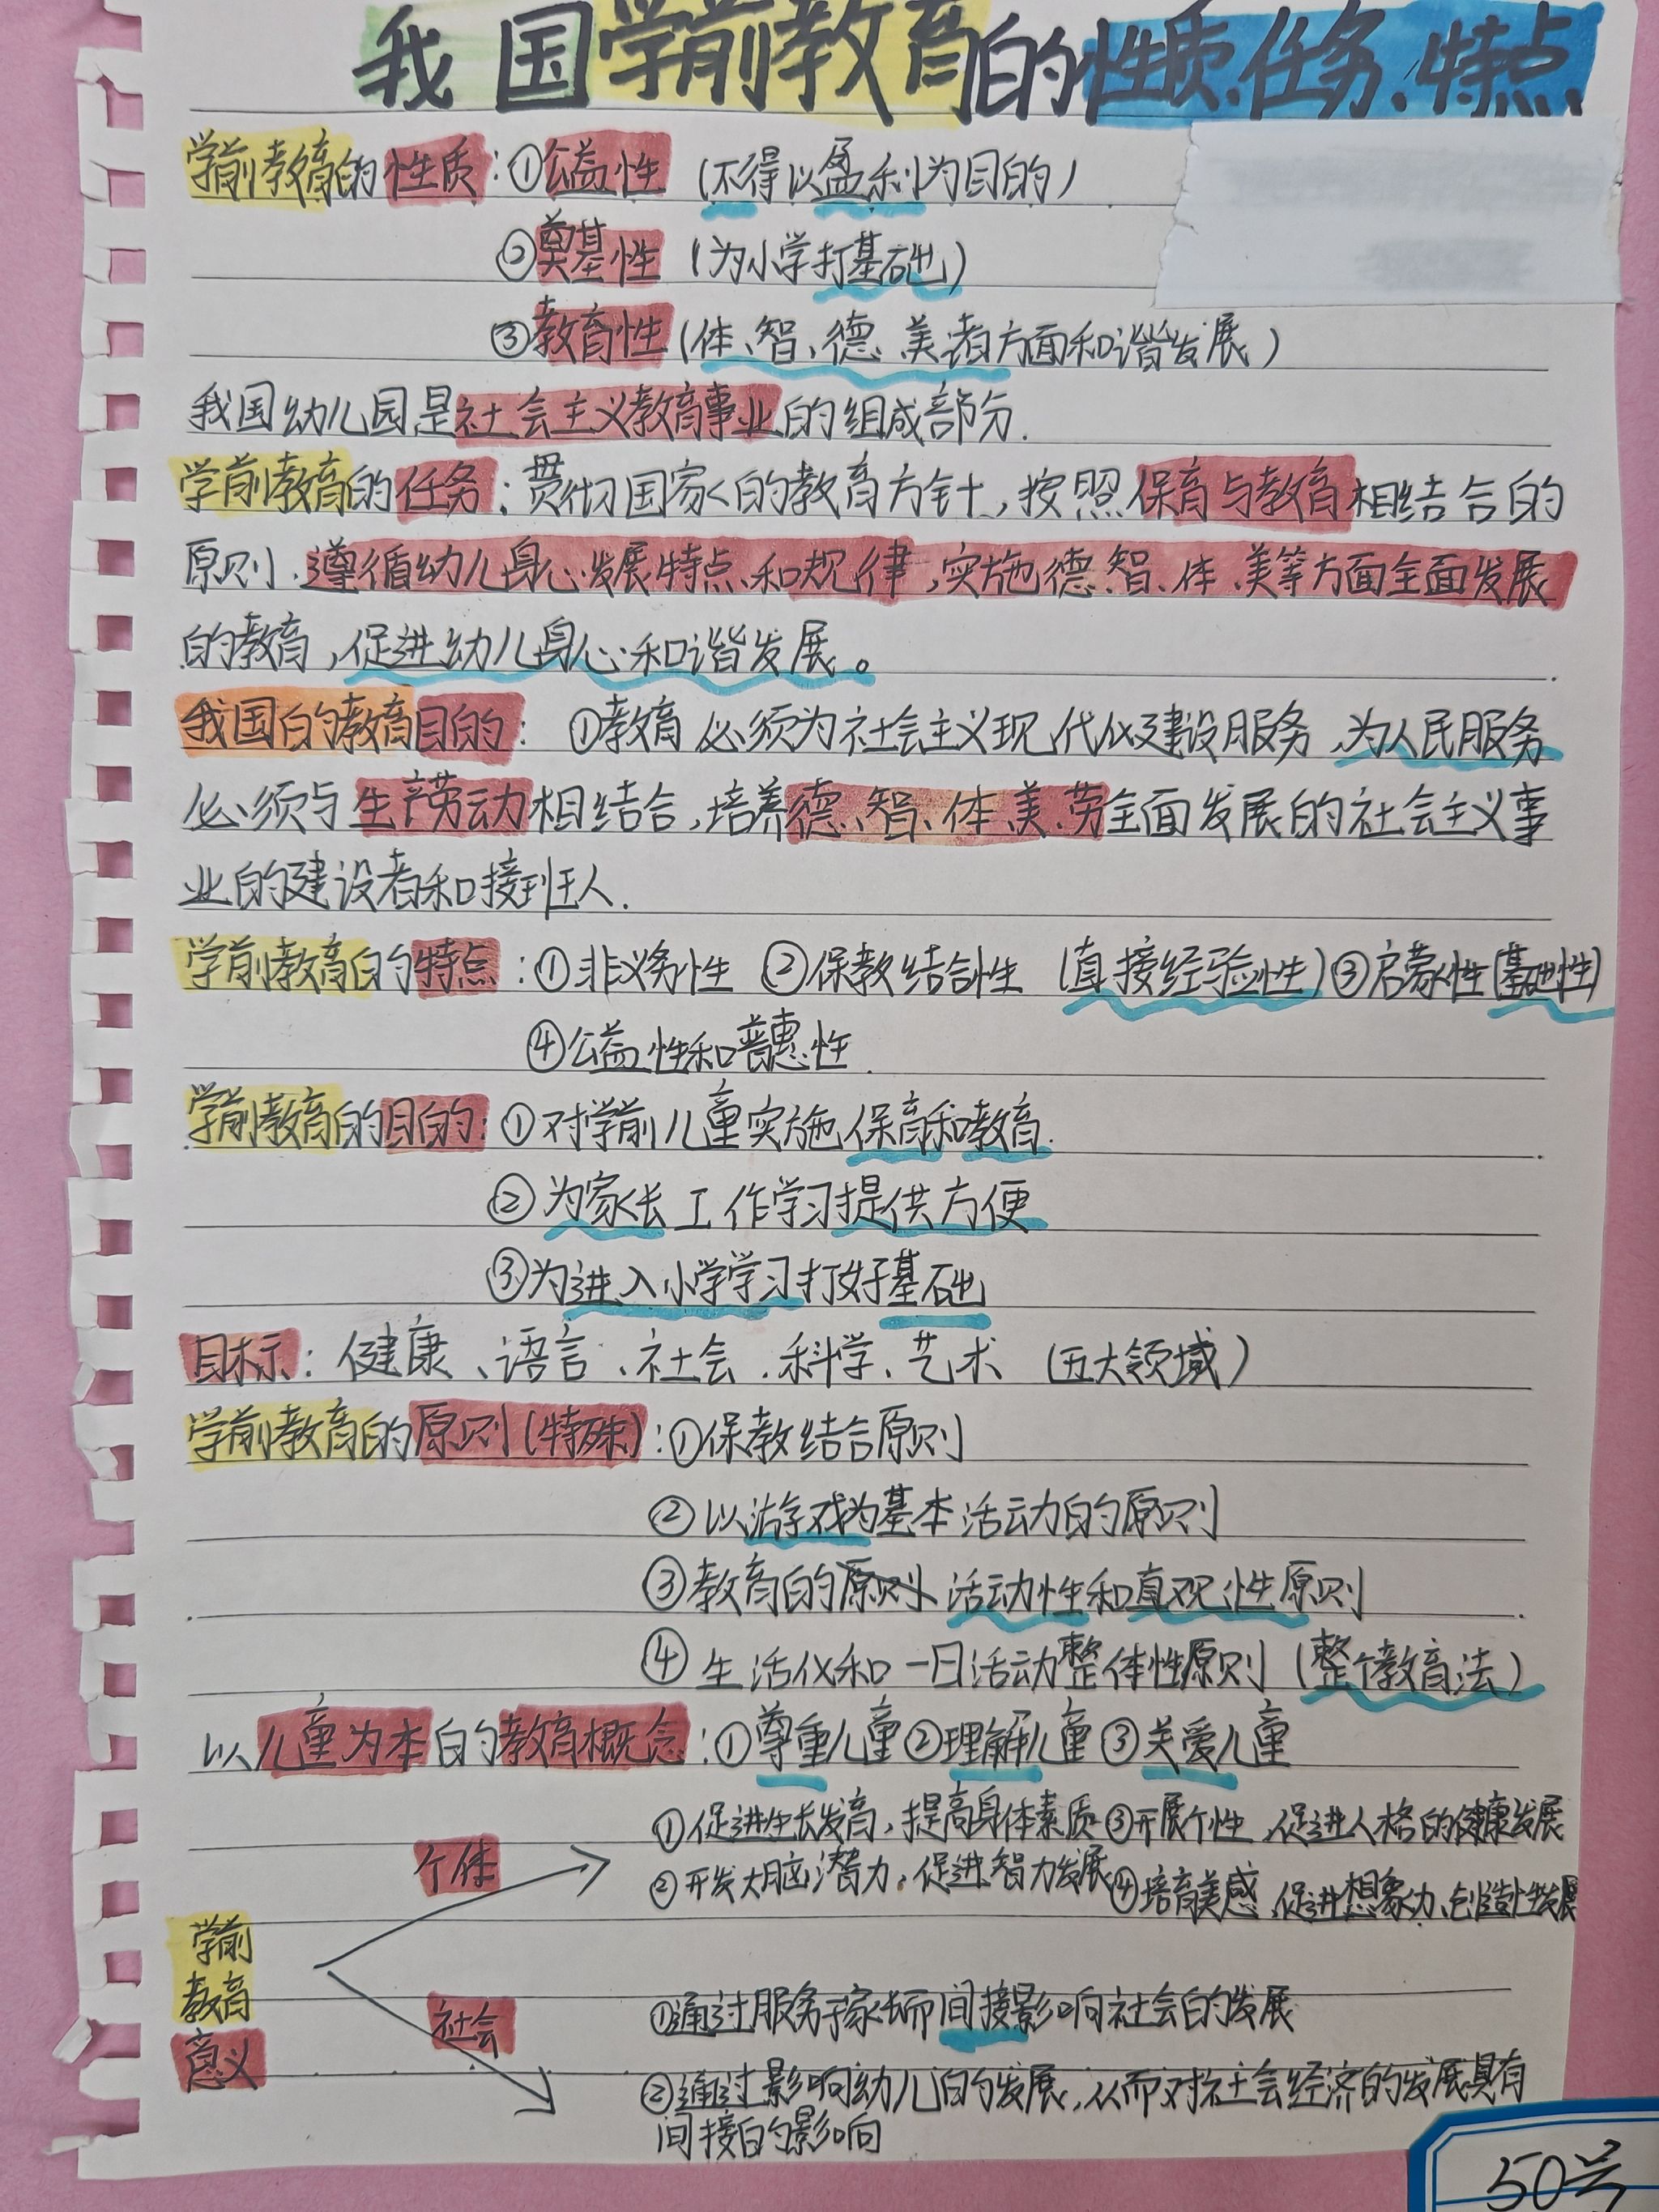 我国学前教育的性质、任务、特点
学前教育的性质：①公益性（不得以盈利为目的）
②奠基性（为小学打基础）
③教育性（体、智、德、美诸方面和谐发展）
我国幼儿园是社会主义教育事业的组成部分.
学前教育的任务：贯彻国家的教育方针，按照保育与教育相结合的
原则、遵循幼儿身心发展特点和规律，实施德、智、体、美等方面全面发展
的教育，促进幼儿身心和谐发展。
我国的教育目的：①教育必须为社会主义现代化建设服务、为人民服务
必须与生产劳动相结合，培养德、智、体、美、劳全面发展的社会主义事
业的建设者和接班人.
学前教育的特点：①非义务性 ②保教结合性（直接经验性）③启蒙性（基础性）
④公益性和普惠性
学前教育的目的：①对学前儿童实施保育和教育.
②为家长工作学习提供方便
③为进入小学学习打好基础
目标：健康、语言、社会、科学、艺术（五大领域）
学前教育的原则（特殊）：①保教结合原则
②以游戏为基本活动的原则
③教育的原则 活动性和直观性原则
④生活化和一日活动整体性原则（整个教育法）
以儿童为本的教育概念：①尊重儿童②理解儿童③关爱儿童
学前教育意义
个体
①促进生长发育，提高身体素质 ③开展个性、促进人格的健康发展
②开发大脑潜力，促进智力发展 ④培育美感、促进想象力、创造性发展
社会
①通过服务于家长而间接影响社会的发展
②通过影响幼儿的发展，从而对社会经济的发展具有
间接的影响
50号